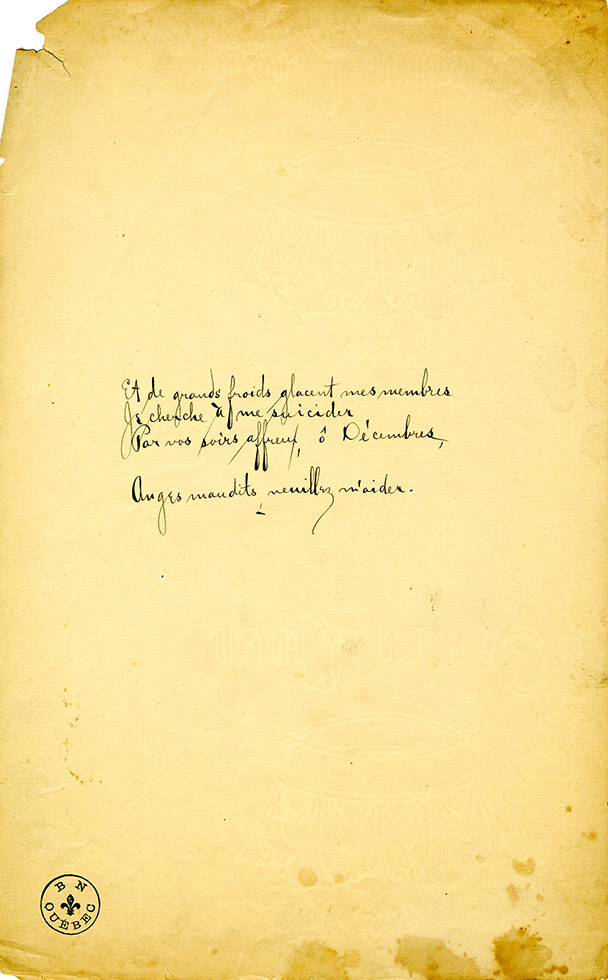 Et de grands froids glacent mes membres
Je cherche à me suicider
Par vos soirs affreux, ô Décembres,
Anges maudits veuillez m'aider.
BN
QUÉBEC